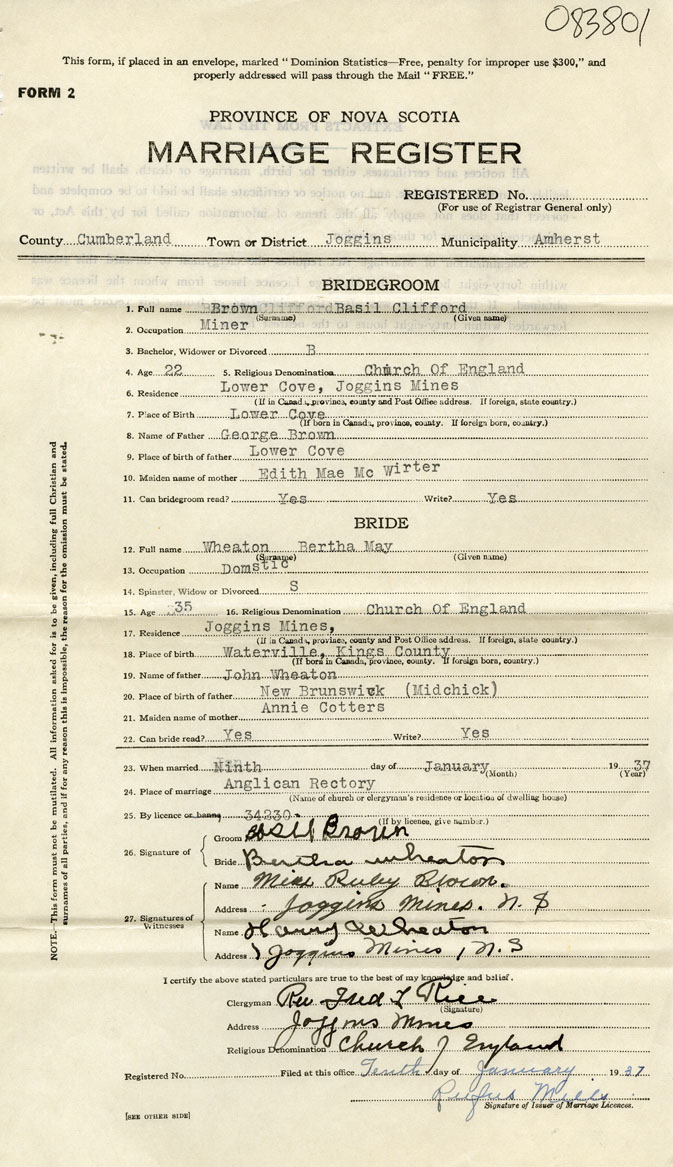 083801
This form, if placed in an envelope, marked “ Dominion Statistics—Free, penalty for improper use $300,” and
properly addressed will pass through the Mail “ FREE.”
FORM 2
PROVINCE OF NOVA SCOTIA
MARRIAGE REGISTER
REGISTERED No.
(For use of Registrar General only)
County Cumberland Town or District Joggins Municipality Amherst
BRIDEGROOM
1. Full name Brown Clifford Basil Clifford
(Surname) (Given name)
2. Occupation Miner
3. Bachelor, Widower or Divorced B
4. Age 22 5. Religious Denomination Church Of England
6. Residence Lower Cove, Joggins Mines
(If in Canada, province, county and Post Office address. If foreign, state country.)
7. Place of Birth Lower Cove
(If born in Canada, province, county. If foreign born, country.)
8. Name of Father George Brown
9. Place of birth of father Lower Cove
10. Maiden name of mother Edith Mae Mc Wirter
11. Can bridegroom read? Yes Write? Yes
BRIDE
12. Full name Wheaton Bertha May
(Surname) (Given name)
13. Occupation Domstic
14. Spinster, Widow or Divorced S
15. Age 35 16. Religious Denomination Church Of England
17. Residence Joggins Mines,
(If in Canada, province, county and Post Office address. If foreign, state country.)
18. Place of birth Waterville, Kings County
(If born in Canada, province, county. If foreign born, country.)
19. Name of father John Wheaton
20. Place of birth of father New Brunswick (Midchick)
21. Maiden name of mother Annie Cotters
22. Can bride read? Yes Write? Yes
23. When married Ninth day of January 19 37
(Month) (Year)
24. Place of marriage Anglican Rectory
(Name of church or clergyman's residence or location of dwelling house)
25. By licence or banns 34230
(If by licence, give number.)
26. Signature of Groom Basil Brown
Bride Bertha Wheaton
27. Signatures of Witnesses
Name Miss Ruby Brown.
Address Joggins Mines. N. S
Name Harry Wheaton
Address Joggins Mines, N. S
I certify the above stated particulars are true to the best of my knowledge and belief.
Clergyman Rev Fred L Rice
(Signature)
Address Joggins Mines
Religious Denomination Church of England
Registered No. Filed at this office Tenth day of January 19 37
Rufus Mills
Signature of Issuer of Marriage Licences.
[SEE OTHER SIDE]
NOTE.—This form must not be mutilated. All information asked for is to be given, including full Christian and
surnames of all parties, and if for any reason this is impossible, the reason for the omission must be stated.